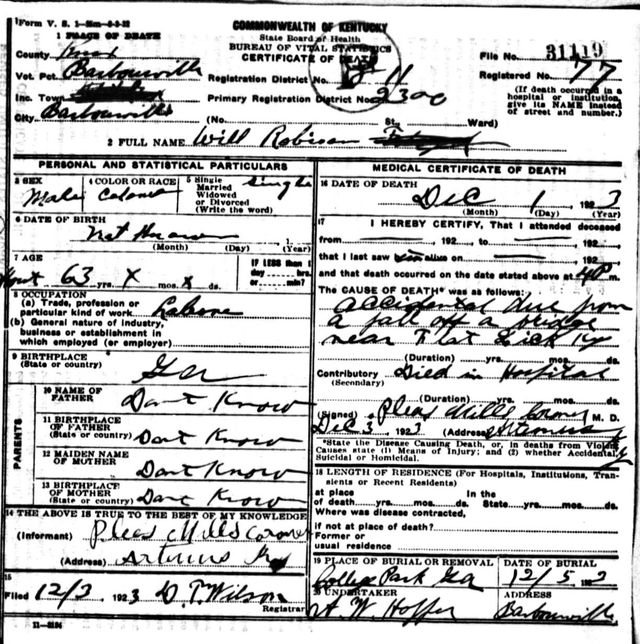 Form V. S. 1-
COMMONWEALTH OF KENTUCKY
State Board of Health
BUREAU OF VITAL STATISTICS
CERTIFICATE OF DEATH
1 PLACE OF DEATH
County Knox
File No. 31119
Vot. Pct. Barbourville
Registration District No. 811
Registered No. 77
Inc. Town
Primary Registration District No. 2300
(If death occurred in a hospital or institution, give its NAME instead of street and number.)
City Barbourville (No. St. Ward)
2 FULL NAME Will Robison
PERSONAL AND STATISTICAL PARTICULARS
3 SEX
Male
4 COLOR OR RACE
Colored
5 Single
Married
Widowed
or Divorced
(Write the word)
Single
6 DATE OF BIRTH
Not Known
(Month) (Day) (Year)
7 AGE
About 63 yrs. X mos. X ds.
IF LESS than 1
day hrs.
or min?
8 OCCUPATION
(a) Trade, profession or
particular kind of work Labore
(b) General nature of industry,
business or establishment in
which employed (or employer)
9 BIRTHPLACE
(State or country)
Ga
PARENTS
10 NAME OF
FATHER
Dont Know
11 BIRTHPLACE
OF FATHER
(State or country)
Dont Know
12 MAIDEN NAME
OF MOTHER
Dont Know
13 BIRTHPLACE
OF MOTHER
(State or country)
Dont Know
14 THE ABOVE IS TRUE TO THE BEST OF MY KNOWLEDGE
(Informant) Pleas Mills Coroner
(Address) Artemus Ky
15
Filed 12/3 1923 D. T. Wilson
Registrar
MEDICAL CERTIFICATE OF DEATH
16 DATE OF DEATH
Dec 1 1923
(Month) (Day) (Year)
17 I HEREBY CERTIFY, That I attended deceased
from 192 to 192
that I last saw alive on 192
and that death occurred on the date stated above at m.
The CAUSE OF DEATH* was as follows:
accidental due from
a fall off a bridge
near Flat Lick Ky
(Duration) yrs. mos. ds.
Contributory Died in Hospital
(Secondary)
(Duration) yrs. mos. ds.
(Signed) Pleas Mills Coroner M. D.
Dec 3 1923 (Address) Artemus Ky
*State the Disease Causing Death, or, in deaths from Violent
Causes state (1) Means of Injury; and (2) whether Accidental,
Suicidal or Homicidal.
18 LENGTH OF RESIDENCE (For Hospitals, Institutions, Tran-
sients or Recent Residents)
at place In the
of death yrs. mos. ds. State yrs. mos. ds.
Where was disease contracted,
if not at place of death?
Former or
usual residence
19 PLACE OF BURIAL OR REMOVAL
College Park Ga
DATE OF BURIAL
12/5 1923
20 UNDERTAKER
A. W. Hoffer
ADDRESS
Barbourville